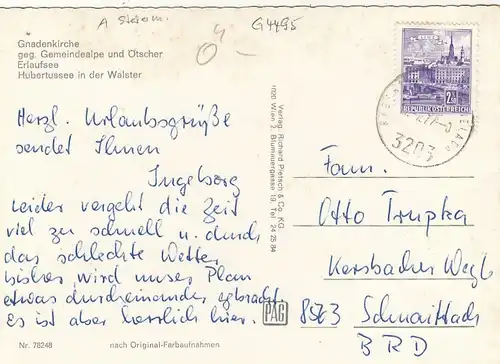 A Steierm.
G4495
Gnadenkirche
geg. Gemeindealpe und Ötscher
Erlaufsee
Hubertussee in der Walster
Herzl. Urlaubsgrüße
sendet Ihnen
Ingeborg
Leider vergeht die Zeit
viel zu schnell u. durch
das schlechte Wetter
bisher wird unser Plan
etwas durcheinander gebracht.
Es ist aber herrlich hier.
Nr. 78248
nach Original-Farbaufnahmen
Verlag: Richard Pietsch & Co. KG.
1020 Wien 2, Blumauergasse 19, Tel 24 25 84
PAG
LINZ
2 S
REPUBLIK ÖSTERREICH
3203
Fam.
Otto Trupka
Kersbacher Weg 6
8563 Schnaittach
BRD